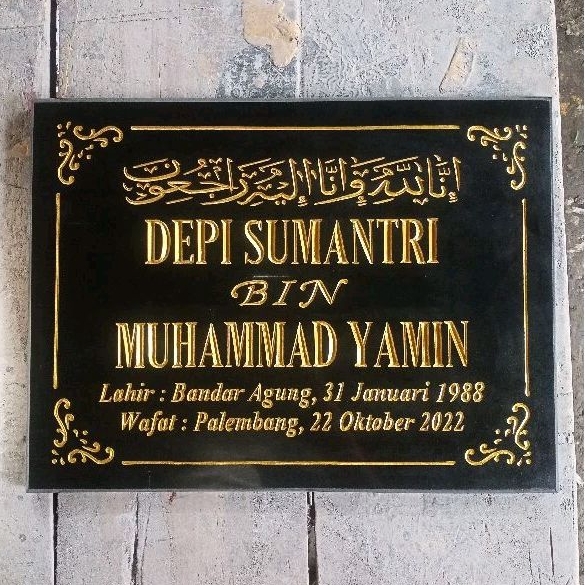 إنا لله وإنا إليه راجعون
DEPI SUMANTRI
BIN
MUHAMMAD YAMIN
Lahir : Bandar Agung, 31 Januari 1988
Wafat : Palembang, 22 Oktober 2022